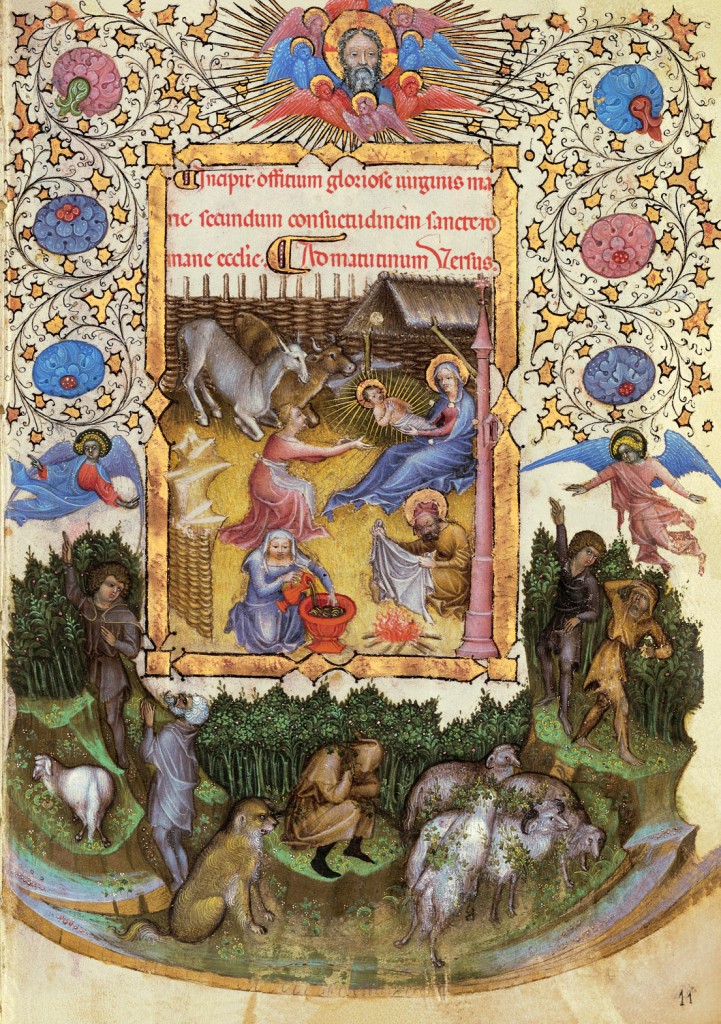 Incipit offitium gloriose uirginis ma
rie secundum consuetudinem sancte ro
mane ecclie. Ad matutinum Versus.
11